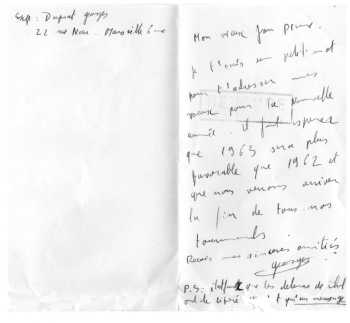 Exp : Duprat georges
22 rue Marseille 6
Mon vieux Jean Pierre.
je t'envoie un petit mot
pour t'adresser mes
voeux pour la nouvelle
année. il faut esperer
que 1963 sera plus
favorable que 1962 et
que nous verrons arriver
la fin de tous nos
tourments.
Reçois mes sinceres amitiés
georges
P.S: que les detenus de
ont de